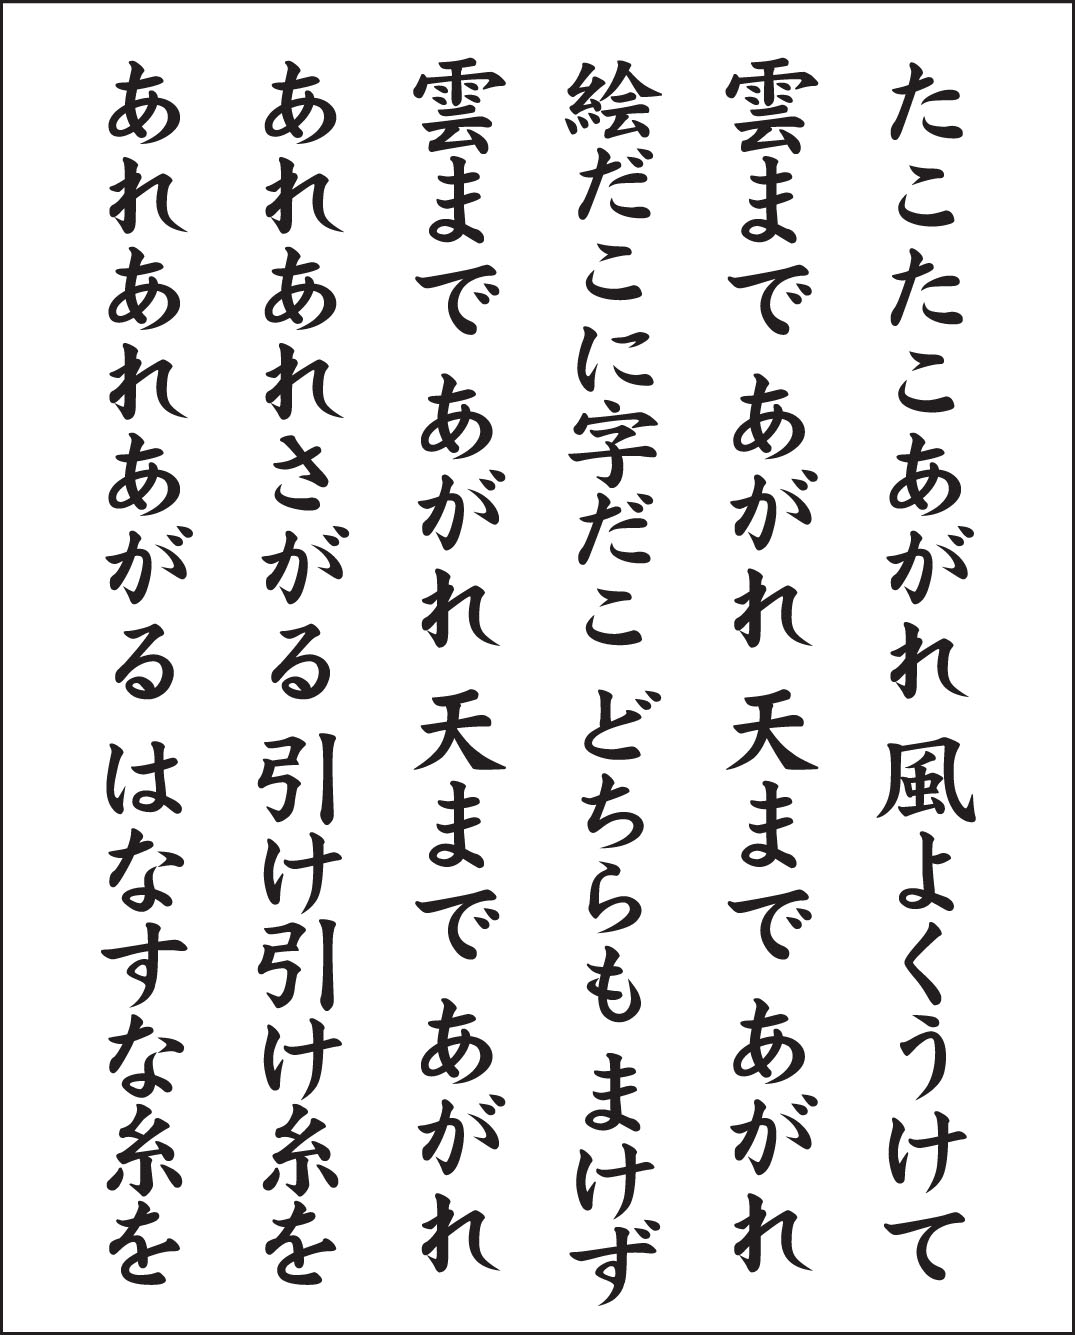 たこたこあがれ 風よくうけて
雲まで あがれ 天まで あがれ
絵だこに字だこ どちらも まけず
雲まで あがれ 天まで あがれ
あれあれさがる 引け引け糸を
あれあれあがる はなすな糸を